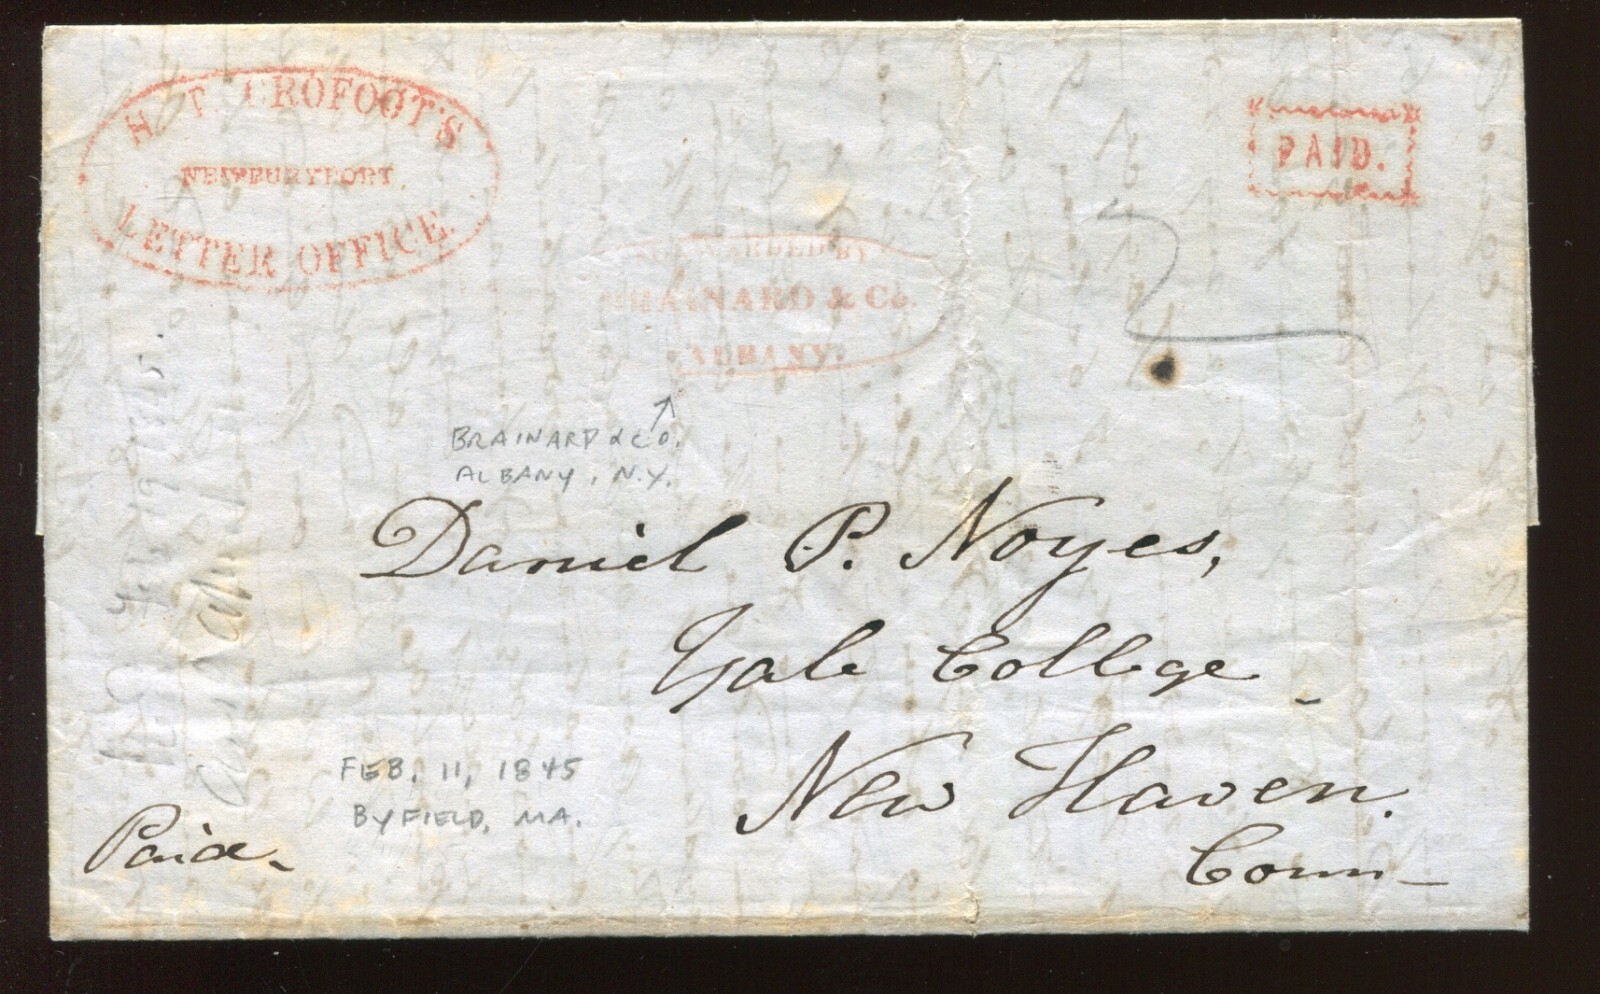 H. T. CROFOOT'S
NEWBURYPORT
LETTER OFFICE.
PAID.
FORWARDED BY
BRAINARD & Co.
ALBANY.
2
BRAINARD & CO.
ALBANY, N.Y.
Daniel P. Noyes,
Yale College
New Haven.
Conn
FEB. 11, 1845
BYFIELD, MA.
Paid